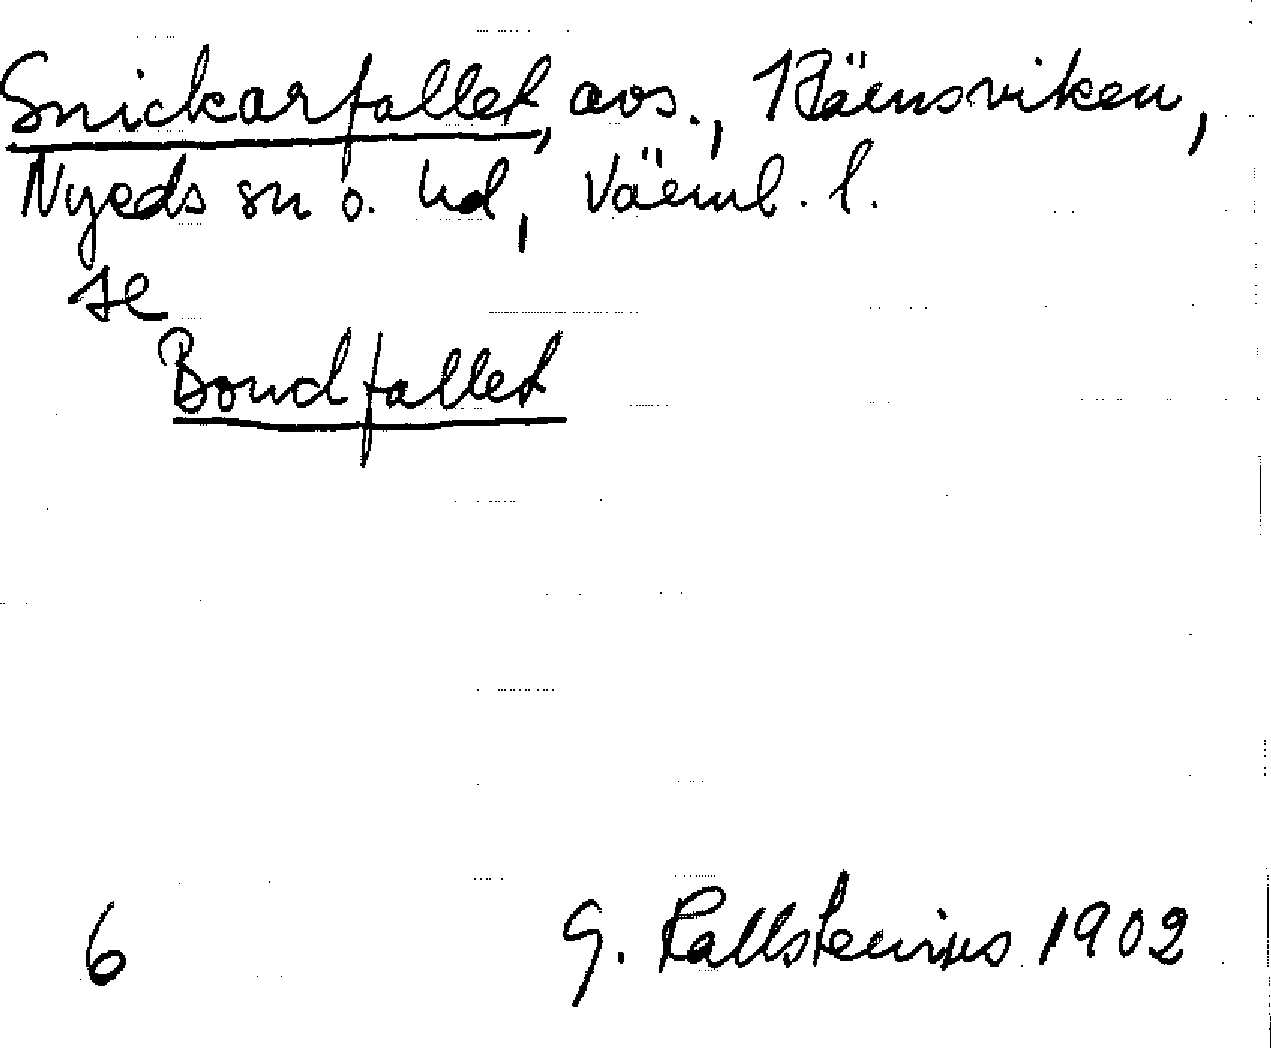 Snickarfallet, avs., Rämsviken,
Nyeds sn o. hd, Värml. l.
se
Bondfallet
6 G. Kallstenius 1902